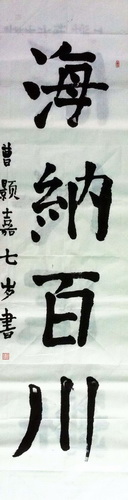 海納百川
曹颢嘉七岁書